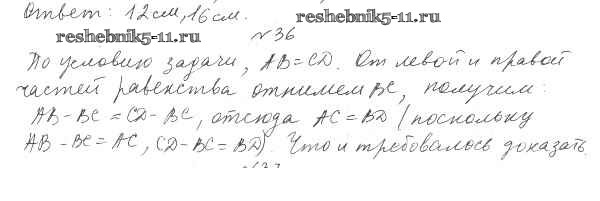 Ответ: 12см, 16см.
reshebnik5-11.ru
reshebnik5-11.ru
№36
По условию задачи, AB=CD. От левой и правой
частей равенства отнимем BC, получим:
AB-BC=CD-BC, отсюда AC=BD (поскольку
AB-BC=AC, CD-BC=BD). Что и требовалось доказать.